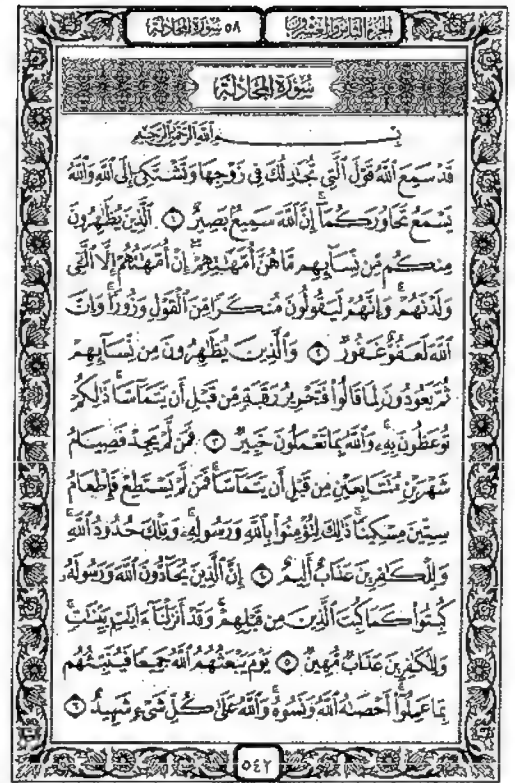 الجزء الثامن والعشرون
٥٨ سورة المجادلة
سورة المجادلة
بسم الله الرحمن الرحيم
قَدْ سَمِعَ ٱللَّهُ قَوْلَ ٱلَّتِي تُجَٰدِلُكَ فِي زَوْجِهَا وَتَشْتَكِيٓ إِلَى ٱللَّهِ وَٱللَّهُ
يَسْمَعُ تَحَاوُرَكُمَآ إِنَّ ٱللَّهَ سَمِيعٌۢ بَصِيرٌ ١ ٱلَّذِينَ يُظَٰهِرُونَ
مِنكُم مِّن نِّسَآئِهِم مَّا هُنَّ أُمَّهَٰتِهِمْ إِنْ أُمَّهَٰتُهُمْ إِلَّا ٱلَّٰٓـِٔي
وَلَدْنَهُمْ وَإِنَّهُمْ لَيَقُولُونَ مُنكَرًا مِّنَ ٱلْقَوْلِ وَزُورًا وَإِنَّ
ٱللَّهَ لَعَفُوٌّ غَفُورٌ ٢ وَٱلَّذِينَ يُظَٰهِرُونَ مِن نِّسَآئِهِمْ
ثُمَّ يَعُودُونَ لِمَا قَالُوا۟ فَتَحْرِيرُ رَقَبَةٍ مِّن قَبْلِ أَن يَتَمَآسَّا ذَٰلِكُمْ
تُوعَظُونَ بِهِۦ وَٱللَّهُ بِمَا تَعْمَلُونَ خَبِيرٌ ٣ فَمَن لَّمْ يَجِدْ فَصِيَامُ
شَهْرَيْنِ مُتَتَابِعَيْنِ مِن قَبْلِ أَن يَتَمَآسَّا فَمَن لَّمْ يَسْتَطِعْ فَإِطْعَامُ
سِتِّينَ مِسْكِينًا ذَٰلِكَ لِتُؤْمِنُوا۟ بِٱللَّهِ وَرَسُولِهِۦ وَتِلْكَ حُدُودُ ٱللَّهِ
وَلِلْكَٰفِرِينَ عَذَابٌ أَلِيمٌ ٤ إِنَّ ٱلَّذِينَ يُحَآدُّونَ ٱللَّهَ وَرَسُولَهُۥ
كُبِتُوا۟ كَمَا كُبِتَ ٱلَّذِينَ مِن قَبْلِهِمْ وَقَدْ أَنزَلْنَآ ءَايَٰتٍۭ بَيِّنَٰتٍ
وَلِلْكَٰفِرِينَ عَذَابٌ مُّهِينٌ ٥ يَوْمَ يَبْعَثُهُمُ ٱللَّهُ جَمِيعًا فَيُنَبِّئُهُم
بِمَا عَمِلُوٓا۟ أَحْصَىٰهُ ٱللَّهُ وَنَسُوهُ وَٱللَّهُ عَلَىٰ كُلِّ شَىْءٍ شَهِيدٌ ٦
٥٤٢